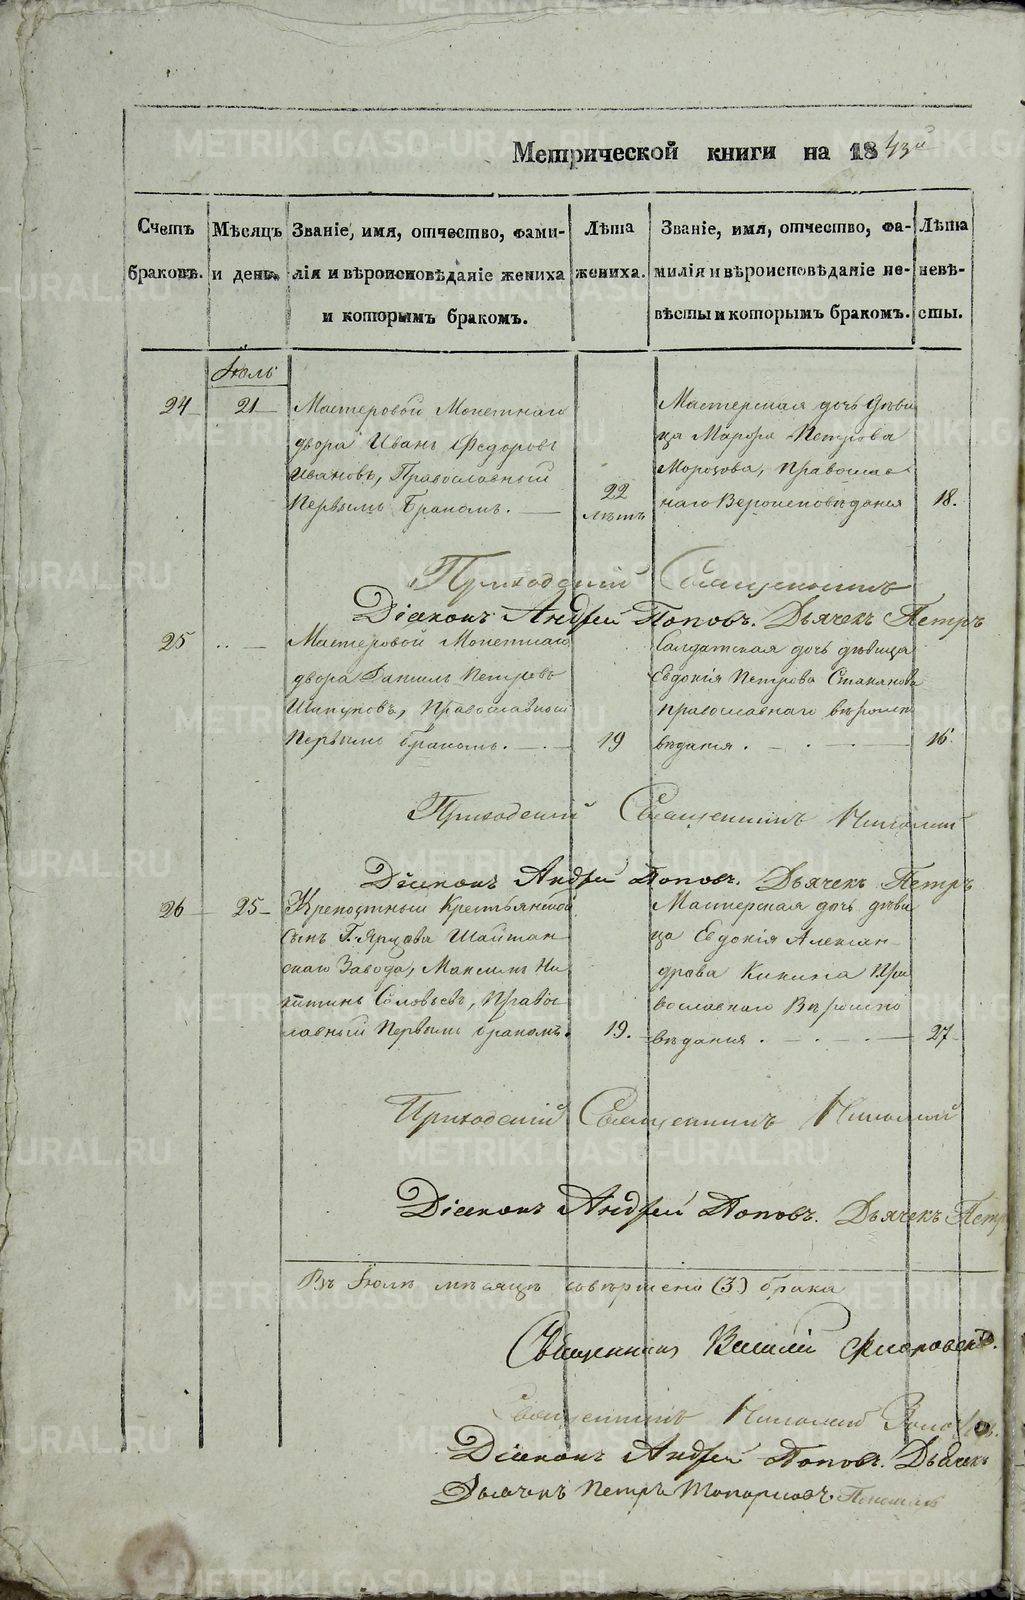 Метрической книги на 1843й
Счетъ браковъ.
Мѣсяцъ и день.
Званіе, имя, отчество, фами-
лія и вѣроисповѣданіе жениха
и которымъ бракомъ.
Лѣта жениха.
Званіе, имя, отчество, фа-
милія и вѣроисповѣданіе не-
вѣсты и которымъ бракомъ.
Лѣта невѣ-
сты.
Іюль
24
21
Мастеровой Монетнаго
двора Иванъ Федоровъ
Ивановъ, Православный
Первымъ бракомъ.
22
лѣтъ
Мастерская дочь дѣви
ца Марфа Петрова
Морозова, Православ
наго Вероисповѣданія
18.
Приходскій Священникъ
Діаконъ Андрей Поповъ. Дьячекъ Петръ
25
Мастеровой Монетнаго
двора Данилъ Петровъ
православный
Первымъ бракомъ.
19
Салдатская дочь дѣвица
Евдокія Петрова Стаканова
православнаго вѣроисп
вѣданія.
16.
Приходскій Священникъ Николай
Діаконъ Андрей Поповъ. Дьячекъ Петръ
26
25
Крепостный Крестьянской
сынъ Г. Ярцова Шайтан
скаго Завода, Максимъ Ни
китинъ Соловьевъ, Правос
лавный Первымъ бракомъ.
19.
Мастерская дочь дѣви
ца Евдокія Алексан
дрова Кикина Пра
вославнаго Вѣроиспо
вѣданія.
27
Приходскій Священникъ Николай
Діаконъ Андрей Поповъ. Дьячекъ Петр
Въ Іюлѣ мѣсяцѣ совершено (3) брака
Священникъ Василій Флоровскій.
Священникъ Николай
Діаконъ Андрей Поповъ. Дьячекъ
Дьячекъ Петръ Топорковъ
METRIKI.GASO-URAL.RU